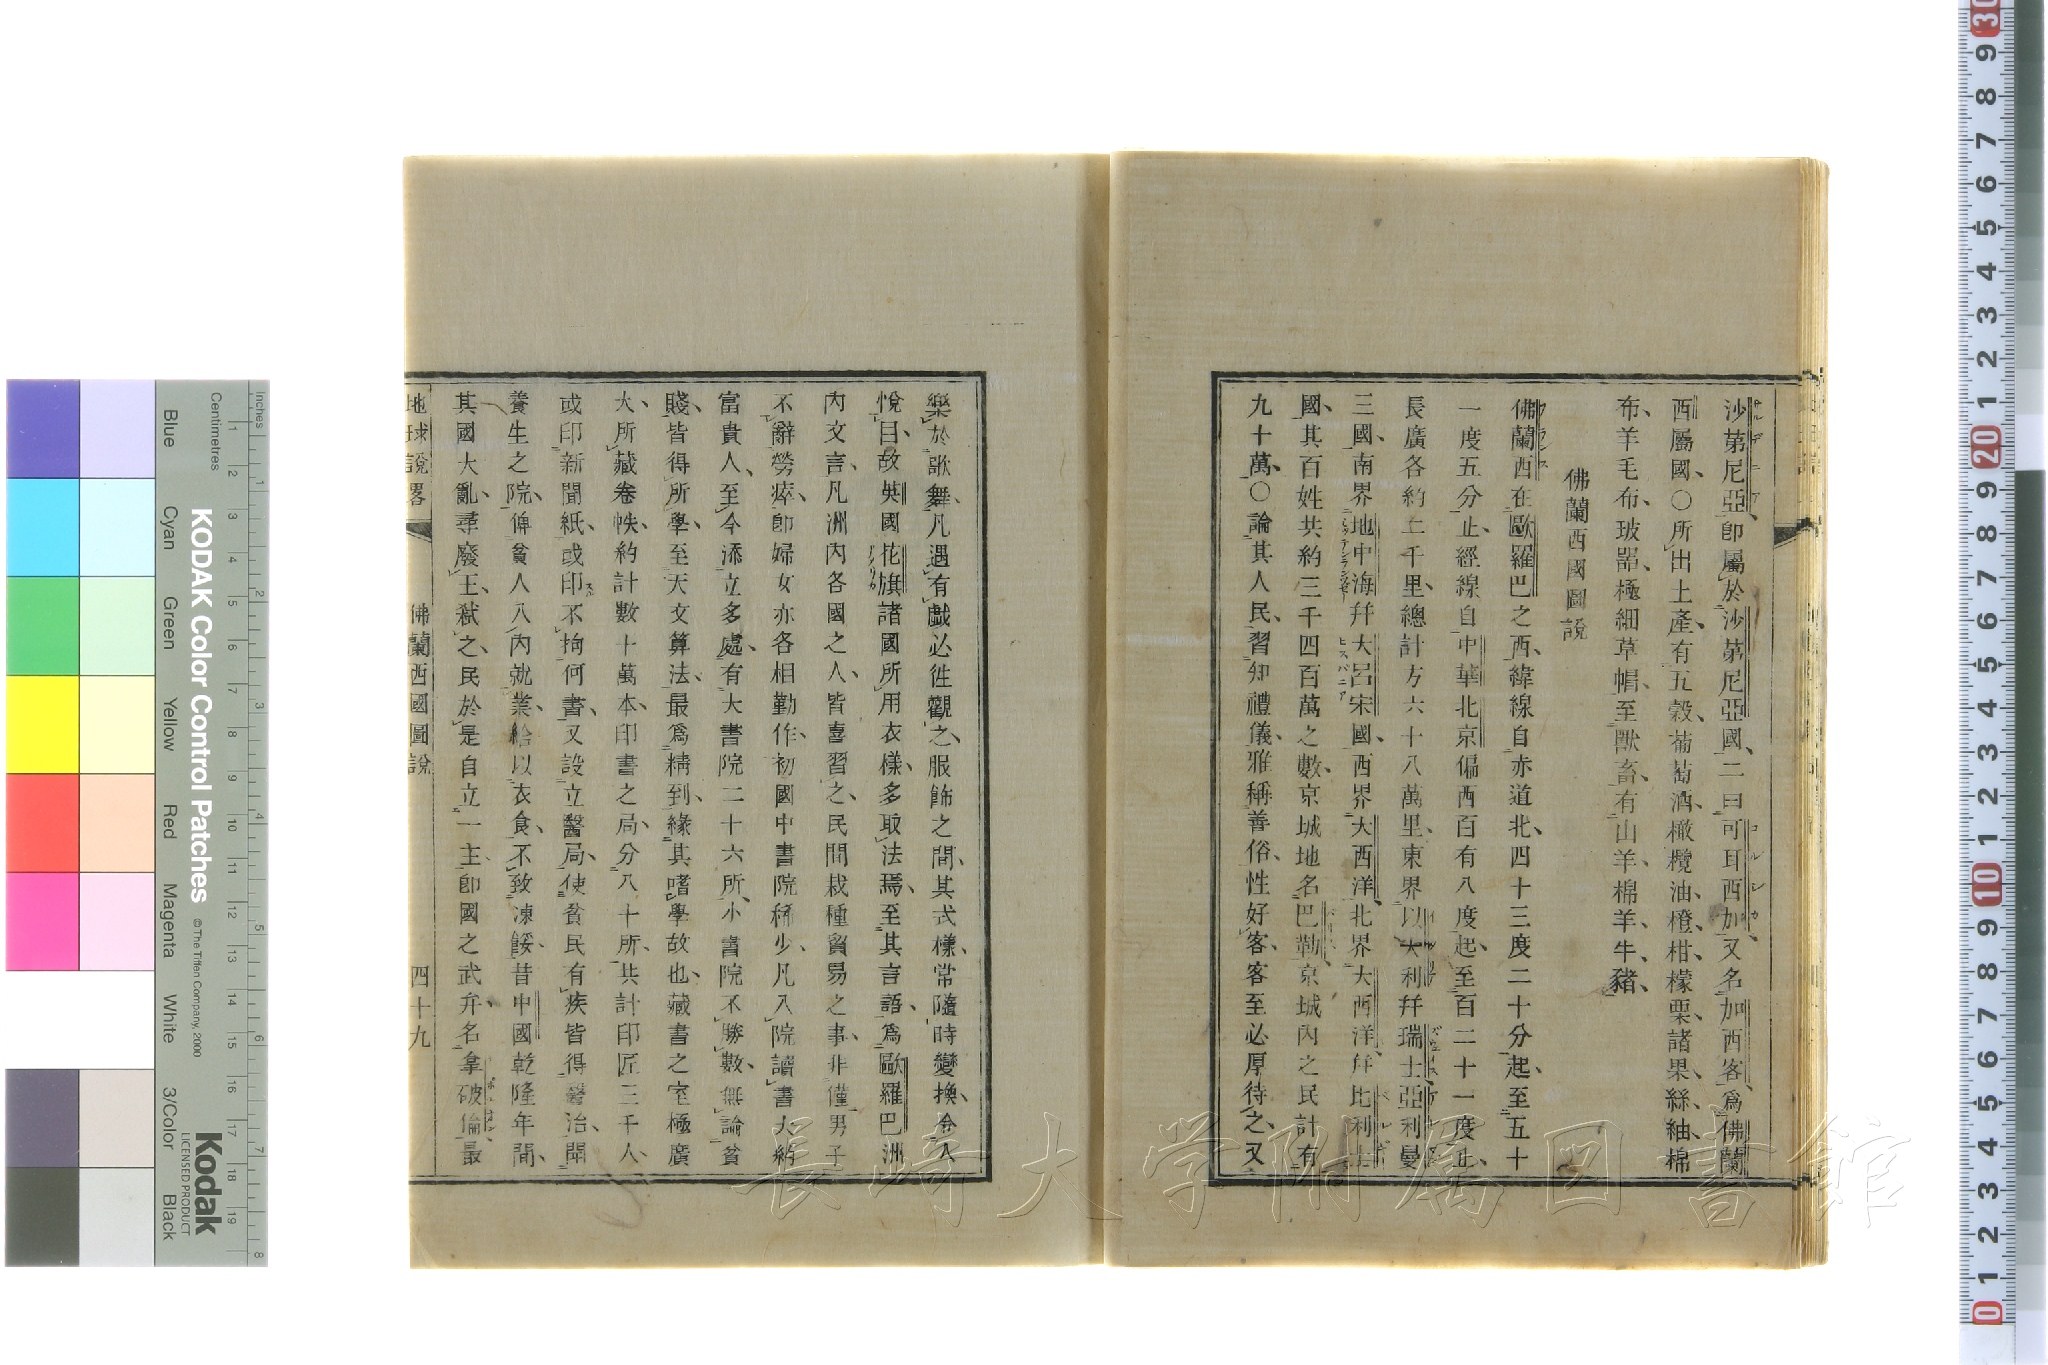 沙第尼亞、卽屬於沙第尼亞國、二曰可耳西加、又名加西客、爲佛蘭
西屬國、〇所出土產、有五穀、葡萄酒、橄欖油、橙柑檬栗諸果、絲紬、棉
布、羊毛布、玻器、極細草帽、至獸畜、有山羊、棉羊、牛、豬、
佛蘭西國圖說
佛蘭西在歐羅巴之西、緯線自赤道北、四十三度二十分起、至五十
一度五分止、經線自中華北京偏西百有八度起、至百二十一度止、
長廣各約二千里、總計方六十八萬里、東界以大利幷瑞士亞利曼
三國、南界地中海幷大呂宋國、西界大西洋、北界大西洋幷比利士
國、其百姓共約三千四百萬之數、京城地名巴勒、京城內之民、計有
九十萬、〇論其人民、習知禮儀、雅稱善俗、性好客、客至必厚待之、又
樂於歌舞、凡遇有戲必徃觀之、服飾之間、其式樣、常隨時變換、令人
悅目、故英國花旗諸國所用衣樣、多取法焉、至其言語、爲歐羅巴洲
內文言、凡洲內各國之人、皆喜習之、民間栽種貿易之事、非僅男子
不辭勞瘁、卽婦女亦各相勤作、初國中書院稀少、凡入院讀書、大約
富貴人、至今添立多處、有大書院二十六所、小書院不勝數、無論貧
賤、皆得所學、至天文算法、最爲精到、緣其嗜學故也、藏書之室極廣
大、所藏卷帙、約計數十萬本、印書之局、分八十所、共計印匠三千人、
或印新聞紙、或印不拘何書、又設立醫局、使貧民有疾皆得醫治、開
養生之院、俾貧人入內就業、給以衣食、不致凍餒、昔中國乾隆年間、
其國大亂、尋廢王、弒之、民於是自立一主、卽國之武弁、名拿破倫、最
地球說畧 佛蘭西國圖說 四十九
長崎大学附属図書館
KODAK Color Control Patches
© The Tiffen Company, 2000
Kodak
LICENSED PRODUCT
Blue Cyan Green Yellow Red Magenta White 3/Color Black
inches
Centimetres
1 2 3 4 5 6 7 8 9 10 11 12 13 14 15 16 17 18 19
1 2 3 4 5 6 7 8
30 9 8 7 6 5 4 3 2 1 20 9 8 7 6 5 4 3 2 1 10 9 8 7 6 5 4 3 2 1 0